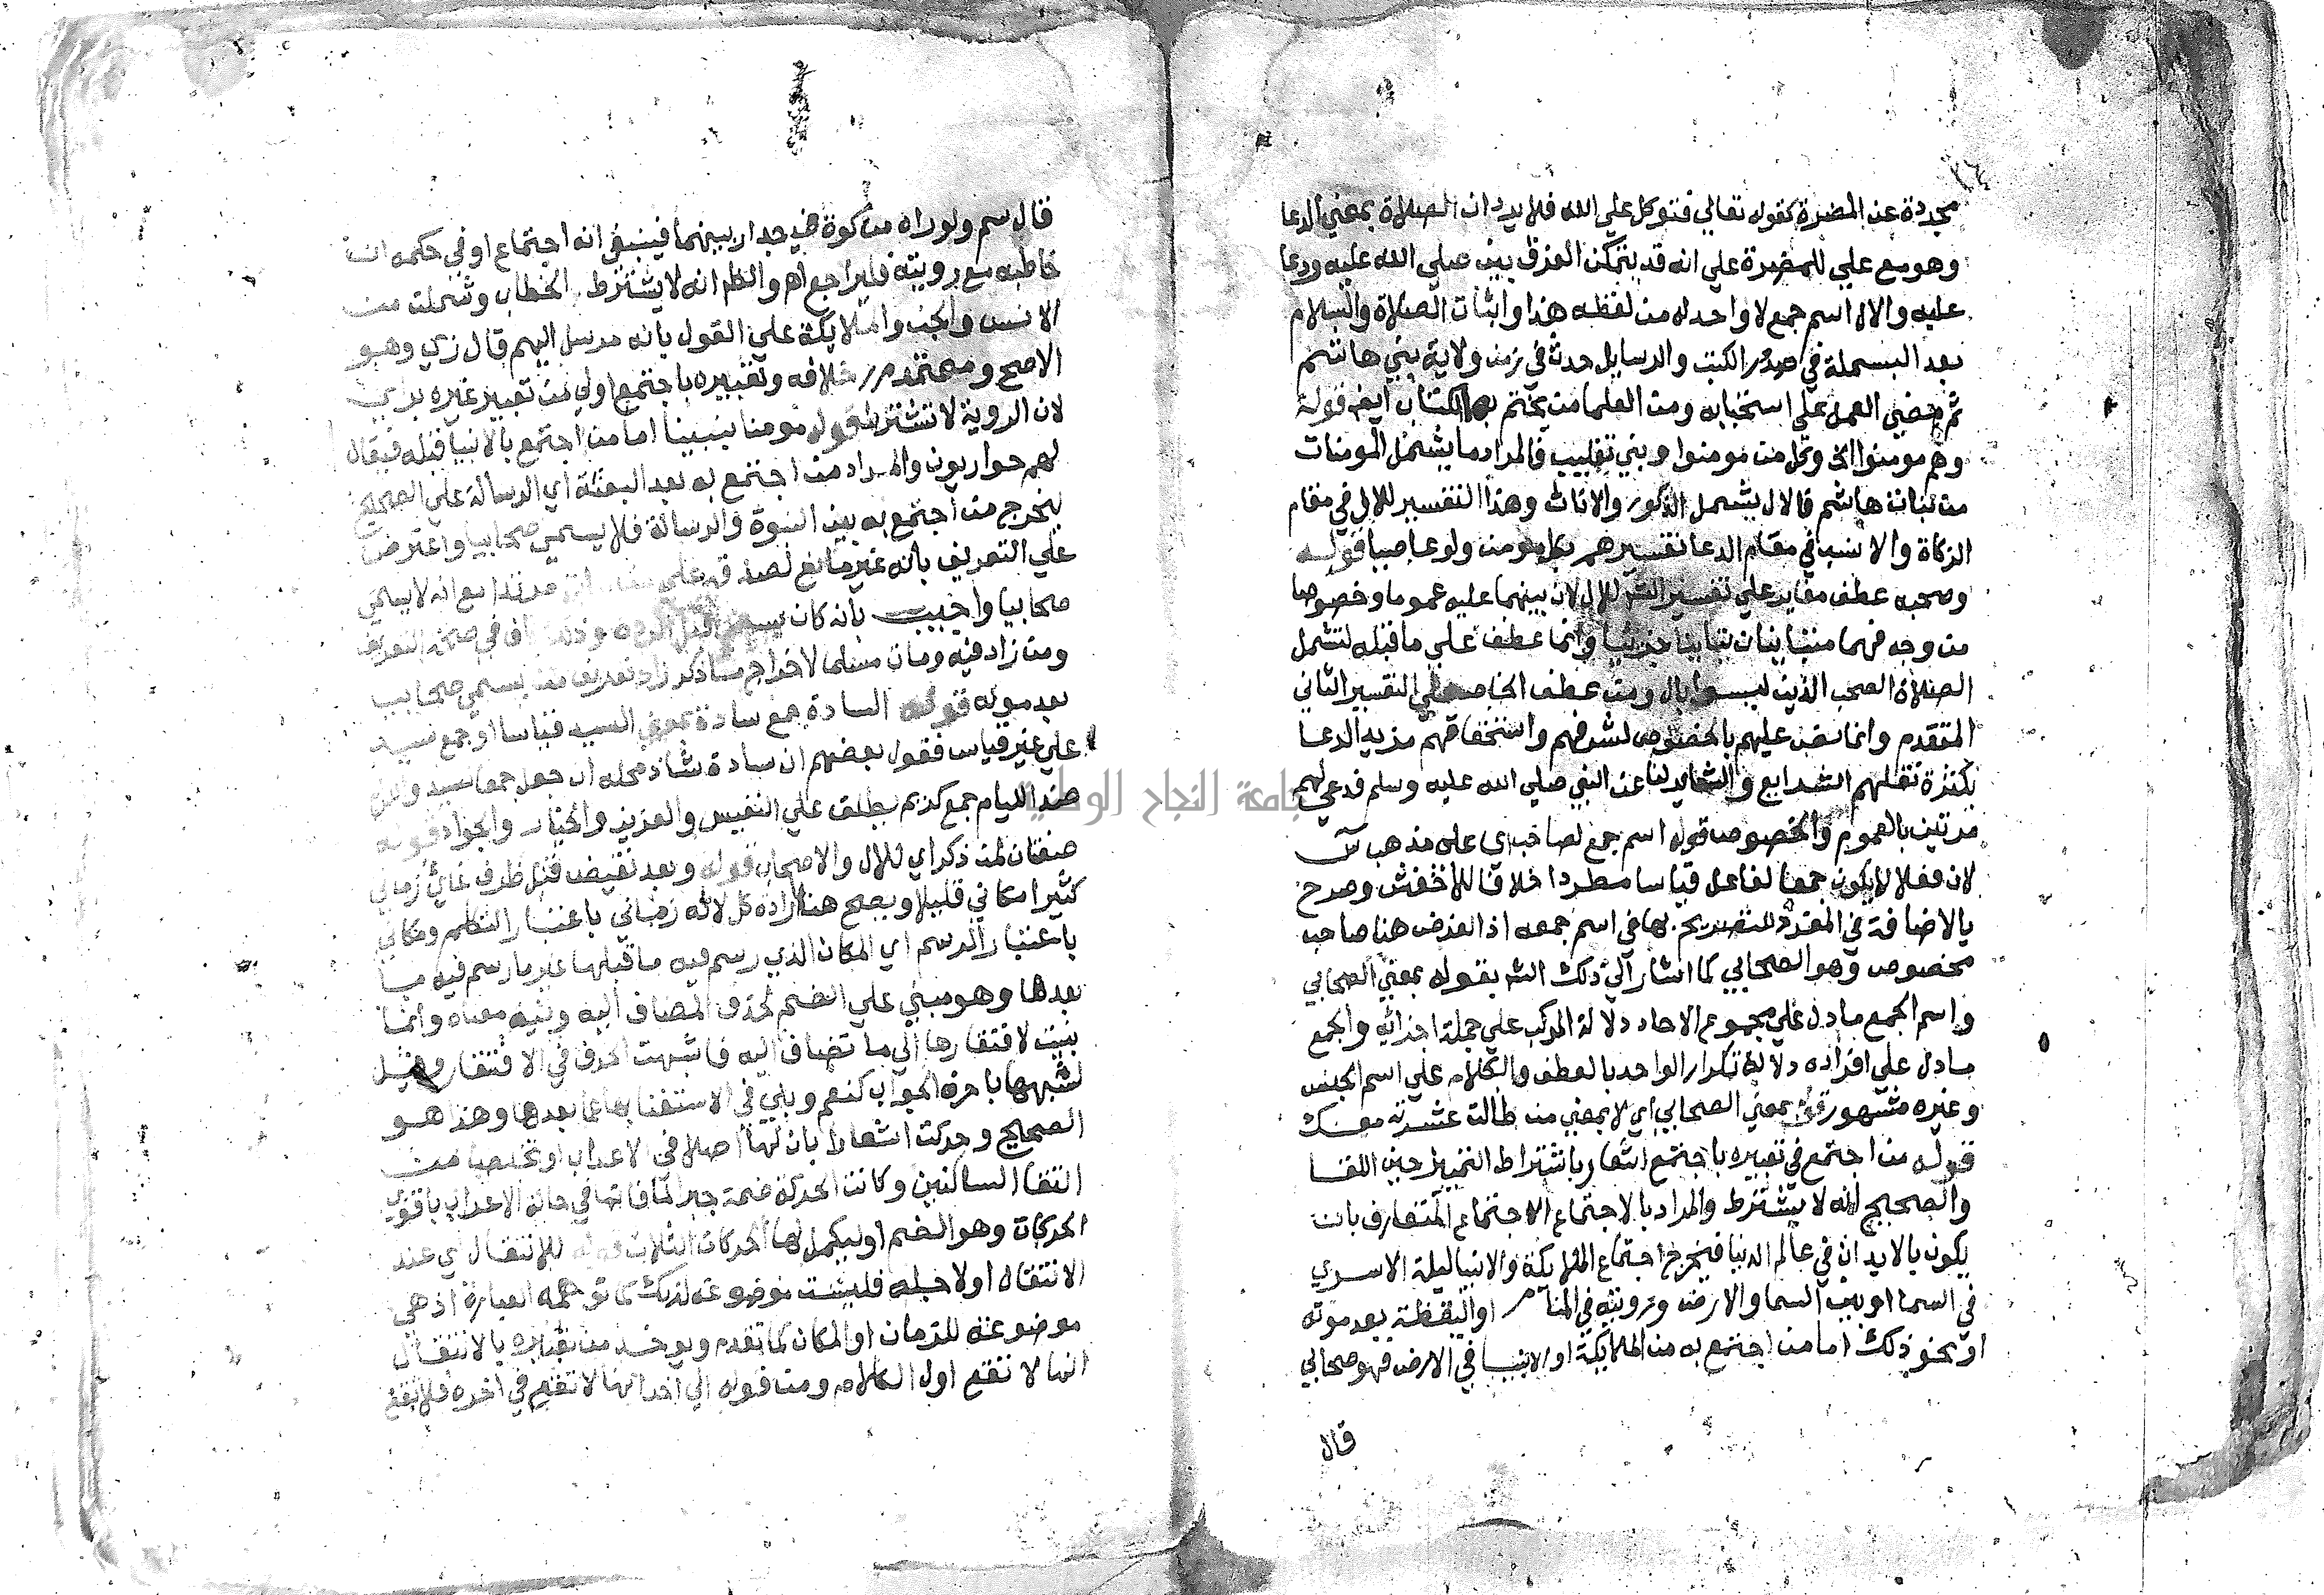 مجردة عن المضرة كقوله تعالي فتوكل علي الله فلا يرد ان الصلاة بمعني الدعا
وهو مع علي للمضرة علي انه قد يتمكن الفرق بين صلي الله عليه ودعا
عليه والال اسم جمع لا واحد له من لفظه هذا واثبات الصلاة والسلام
بعد البسملة في صدر الكتب والرسايل حدث في زمن ولاية بني هاشم
ثم مضي العمل علي استحبابه ومن العلما من يختم بهما الكتاب ايضا قوله
وهم مومنوا الخ وكل من مومنوا وبني تغليب فالمراد ما يشمل المومنات
من بنات هاشم فالال يشمل الذكور والاناث وهذا التفسير للال في مقام
الزكاة والانسب في مقام الدعا تفسيرهم بكل مومن ولو عاصيا قوله
وصحبه عطف مغاير علي تفسير الش للال لان بينهما عليه عموما وخصوصا
من وجه فهما متباينان تباينا جزئيا وانما عطف علي ما قبله لتشمل
الصلاة الصحب الذين ليسوا بال ومن عطف الخاص علي التفسير الثاني
المتقدم وانما نص عليهم بالخصوص لشرفهم واستحقاقهم مزيد الدعا
بكثرة نقلهم الشرايع والشعاير لنا عن النبي صلي الله عليه وسلم فدعي لهم
مرتين بالعموم والخصوص قوله اسم جمع لصاحب اي علي مذهب س
لان فعلا لا يكون جمعا لفاعل قياسا مطردا خلافا للاخفش وصرح
بالاضافة في المفرد للتصريح بها في اسم جمعه اذ الغرض هنا صاحب
مخصوص وهو الصحابي كما اشار الي ذلك الش بقوله بمعني الصحابي
واسم الجمع ما دل علي مجموع الاحاد دلالة المركب علي جملة اجزائه والجمع
ما دل علي افراده دلالة تكرار الواحد بالعطف والكلام علي اسم الجنس
وغيره مشهور قوله بمعني الصحابي اي لا بمعني من طالت عشرته معك
قوله من اجتمع في تعبيره باجتمع اشعار باشتراط التمييز حين اللقا
والصحيح انه لا يشترط والمراد بالاجتماع الاجتماع المتعارف بان
يكون بالابدان في عالم الدنيا فيخرج اجتماع الملايكة والانبيا ليلة الاسري
في السما او بين السما والارض ورويته في المنام او اليقظة بعد موته
او نحو ذلك اما من اجتمع به من الملايكة او الانبيا في الارض فهو صحابي
قال
قال سم ولو راه من كوة في جدار بينهما فينبغي انه اجتماع او في حكمه ان
خاطبه مع رويته فليراجع اهـ والظ انه لا يشترط الخطاب وشملت من
الانس والجن والملايكة علي القول بانه مرسل اليهم قال زي وهو
الاصح ومعتمد مر خلافه وتعبيره باجتمع اولي من تعبير غيره براي
لان الروية لا تشترط قوله مومنا بنبينا اما من اجتمع بالانبيا قبله فيقال
لهم حواريون والمراد من اجتمع به بعد البعثة اي الرسالة علي الصحيح
ليخرج من اجتمع به بين النبوة والرسالة فلا يسمي صحابيا واعترض
علي التعريف بانه غير مانع لصدقه علي من مرتدا مع انه لا يسمي
صحابيا واجيب بانه كان يسمي قبل الردة وذلك كاف في صحة التعريف
ومن زاد فيه ومات مسلما لاخراج من ذكر زاد تعريف من يسمي صحابيا
بعد موته قوله السادة جمع سادة بمعني السيد قياسا او جمع سيد
علي غير قياس فقول بعضهم ان سادة شاذ محله ان جعل جمعا لسيد ولكن
الليام جمع كريم يطلق علي النفيس والعزيز والخيار والجواد قوله
صفتان لمن ذكر اي للال والاصحاب قوله وبعد نقيض قبل ظرف غائي زماني
كثيرا مكاني قليلا ويصح هنا ارادة كل لانه زماني باعتبار التكلم ومكاني
باعتبار الرسم اي المكان الذي رسم فيه ما قبلها غير ما رسم فيه ما
بعدها وهو مبني علي الضم لحذف المضاف اليه ونية معناه وانما
بنيت لافتقارها الي ما تضاف اليه فاشبهت الحرف في الافتقار وقيل
لشبهها باحرف الجواب كنعم وبلي في الاستغنا بها عما بعدها وهذا هو
الصحيح وحركت اشعارا بان لها اصلا في الاعراب او تخلصا من
التقا الساكنين وكانت الحركة ضمة جبرا لما فاتها في حالة الاعراب باقوي
الحركات وهو الضم او ليكمل لها الحركات الثلاث قوله للانتقال اي عند
الانتقال او لاجله فليست موضوعة لذلك كما توهمه العبارة اذ هي
موضوعة للزمان او المكان كما تقدم ويوخذ من تعبيره بالانتقال
انها لا تقع اول الكلام ومن قوله الي اخر انها لا تقع في اخره فلا تقع
جامعة النجاح الوطنية